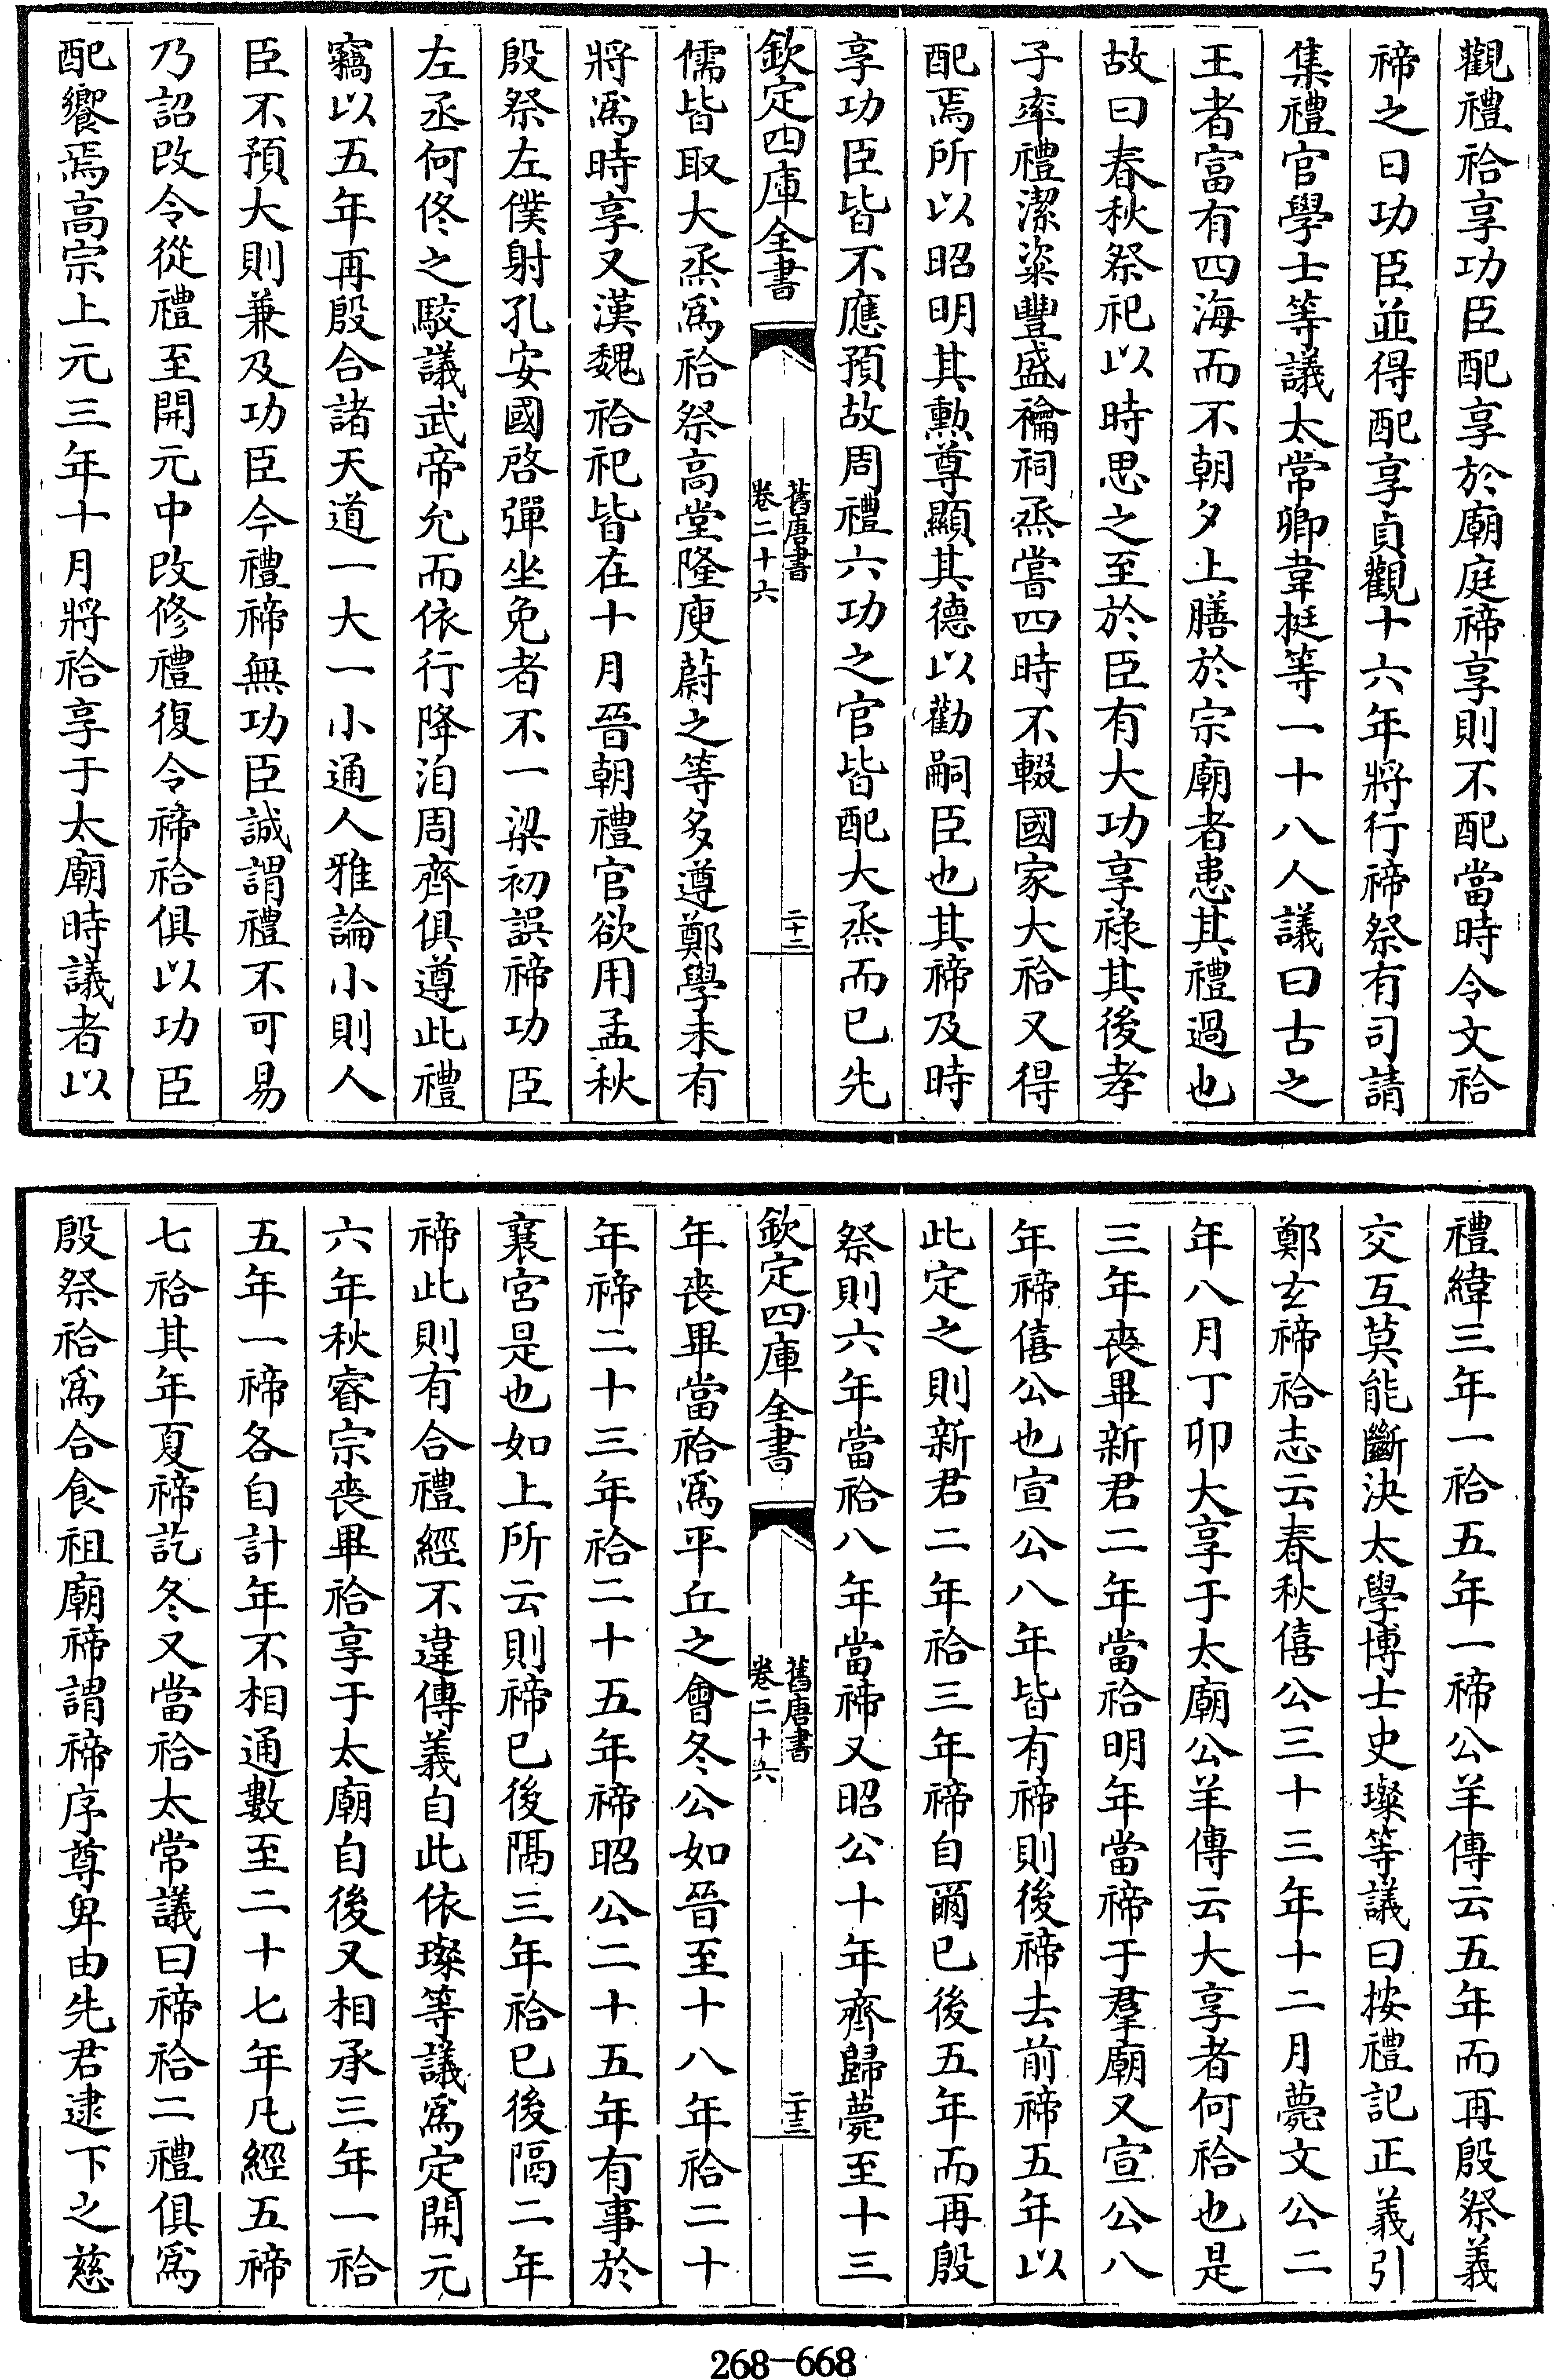 觀禮祫享功臣配享於廟庭禘享則不配當時令文祫
禘之日功臣並得配享貞觀十六年將行禘祭有司請
集禮官學士等議太常卿韋挺等一十八人議曰古之
王者富有四海而不朝夕上膳於宗廟者患其禮過也
故曰春秋祭祀以時思之至於臣有大功享祿其後孝
子率禮潔粢豐盛禴祠烝嘗四時不輟國家大祫又得
配焉所以昭明其勲尊顯其德以勸嗣臣也其禘及時
享功臣皆不應預故周禮六功之官皆配大烝而已先
欽定四庫全書
舊唐書
卷二十六
二十二
儒皆取大烝爲祫祭高堂隆庾蔚之等多遵鄭學未有
將爲時享又漢魏祫祀皆在十月晉朝禮官欲用孟秋
殷祭左僕射孔安國啓彈坐免者不一梁初誤禘功臣
左丞何佟之駮議武帝允而依行降洎周齊俱遵此禮
竊以五年再殷合諸天道一大一小通人雅論小則人
臣不預大則兼及功臣今禮禘無功臣誠謂禮不可易
乃詔改令從禮至開元中改修禮復令禘祫俱以功臣
配饗焉高宗上元三年十月將祫享于太廟時議者以
禮緯三年一祫五年一禘公羊傳云五年而再殷祭義
交互莫能斷決太學博士史璨等議曰按禮記正義引
鄭玄禘祫志云春秋僖公三十三年十二月薨文公二
年八月丁卯大享于太廟公羊傳云大享者何祫也是
三年喪畢新君二年當祫明年當禘于羣廟又宣公八
年禘僖公也宣公八年皆有禘則後禘去前禘五年以
此定之則新君二年祫三年禘自爾已後五年而再殷
祭則六年當祫八年當禘又昭公十年齊歸薨至十三
欽定四庫全書
舊唐書
卷二十六
二十三
年喪畢當祫爲平丘之會冬公如晉至十八年祫二十
年禘二十三年祫二十五年禘昭公二十五年有事於
襄宮是也如上所云則禘已後隔三年祫已後隔二年
禘此則有合禮經不違傳義自此依璨等議爲定開元
六年秋睿宗喪畢祫享于太廟自後又相承三年一祫
五年一禘各自計年不相通數至二十七年凡經五禘
七祫其年夏禘訖冬又當祫太常議曰禘祫二禮俱爲
殷祭祫爲合食祖廟禘謂禘序尊卑由先君逮下之慈
268-668